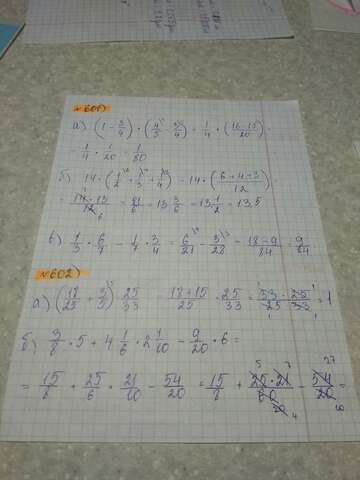 №601)
а) (1 - 3/4) · (4/5 - 3/4) = 1/4 · (16-15)/20 =
= 1/4 · 1/20 = 1/80
б) 14 · (1/2 + 1/3 + 1/4) = 14 · (6+4+3)/12 =
= 14·13/12 = 81/6 = 13 3/6 = 13 1/2 = 13,5
в) 1/3 · 6/7 - 1/7 · 3/4 = 6/21 - 3/28 = 18-9/84 = 9/84
№602)
а) (18/25 + 3/5) · 25/33 = 18+15/25 · 25/33 = 33·25/25·33 = 1
б) 3/8 · 5 + 4 1/6 · 2 1/10 - 9/20 · 6 =
= 15/8 + 25/6 · 21/10 - 54/20 = 15/8 + 25·21/60 - 54/20 =